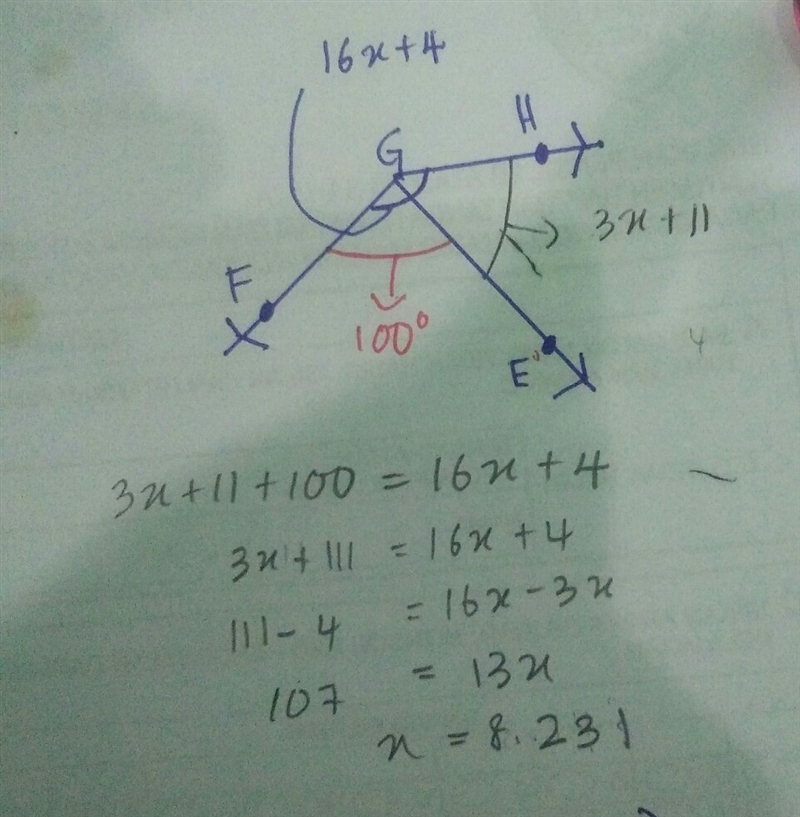 16x+4
G
H
3x+11
F
100°
E
3x+11+100 = 16x+4
3x+111 = 16x+4
111-4 = 16x-3x
107 = 13x
x = 8.231